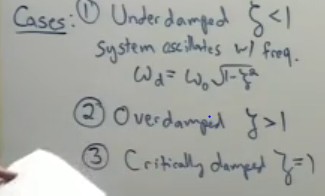 Cases: ① Underdamped ζ<1
system oscillates w/ freq.
ω_d = ω_0 √1-ζ²
② Overdamped ζ>1
③ Critically damped ζ=1